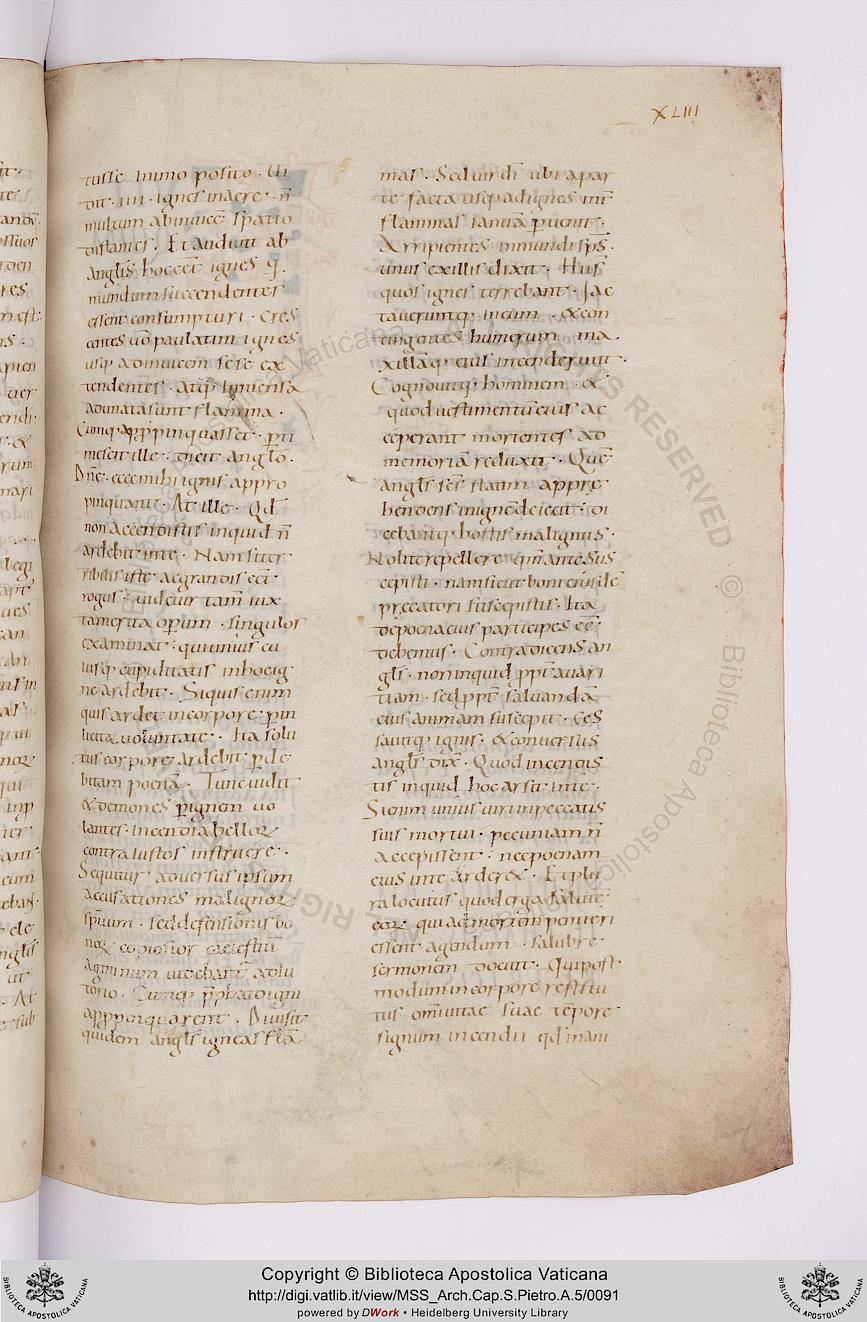 XLIII
tusse inimo posito · Ui
dit · IIII · ignes inaere · n̄
multum abinuicē spatio
distantes · Et audiuit ab
anglis hoc eēt ignes q̄
mundum succendentes
essent consumpturi · Cres
centes uō paulatim ignes
usq; adinuicem sese ex
tendentes · atq; inmensa
adunata sunt flamma ·
Cumq; appropinquasset · p̄ti
mescit ille · dicit anglo ·
Dn̄e · ecce mihi ignis appro
pinquant · At ille · Qd̄
non accendisti inquid n̄
ardebit inte · Nam si ter
ribilis iste ac grandis eēt
rogus · uidetur tam̄ iux
ta merita operum · singulos
examinat · qui unius cu
iusq; cupiditatis in hoc ig
ne ardebit · Siquis enim
quis ardet incorpore · p̄ in
licita uoluntate · Ita solu
tus corpore ardebit p̄ de
bitam poenā · Tunc uidit
& demones p̄ ignem uo
lantes · incendia belloꝝ
contra iustos instruere ·
Sequitur aduersus ipsum
accusationes malignoꝝ
sp̄uum · sed defensionis bo
noꝝ copiosior caelestiū
agminum uidebant̄ adiu
torio · Cumq; p̄pbato igni
appropinquarent · Diuisit
quidem angls igneas flā
mas · Sed uir dī ubi apar
te facta usq; ad ignes int̄
flammas ianuā p̄uenit ·
Arripientes inmundi sp̄s ·
unus ex illis dixit · Hus
quos ignes terrebant · Iac
tauerunt q; in eum · & con
tingentes humerum · ma
xillāq; eius incenderunt ·
Cognouitq; hominem · &
quod uestimentū eius ac
ceperant morientes ad
memoriā reduxit · Quē
angls sc̄s statim appre
hendens in ignē deiecit · di
cebantq; hostis malignus ·
Nolite repellere qm̄ ante sus
cepisti · nam sicut bona eius de
precatori suscepistis · Ita
de poena eius participes eē
debemus · Contradicens an
gls · non inquid ppt̄ auari
tiam · sed ppt̄ saluandā
eius animam suscepit · Ces
sauitq; ignis · & conuersus
angls dix̄ · Quod incendis
tis inquid hoc arsit inte ·
Si enim unius uiri inpeccatis
suis mortui · pecuniam n̄
accepissent · nec poenam
eius inte arder& · Et plu
ra locutus quod erga salutē
eoꝝ qui ad mortem peniteri
essent agendum · salubre
sermonem docuit · Qui post
modum incorpore restitu
tus om̄i uitae suae tēpore
signum incendii qd̄ inani
Copyright © Biblioteca Apostolica Vaticana
http://digi.vatlib.it/view/MSS_Arch.Cap.S.Pietro.A.5/0091
powered by DWork • Heidelberg University Library